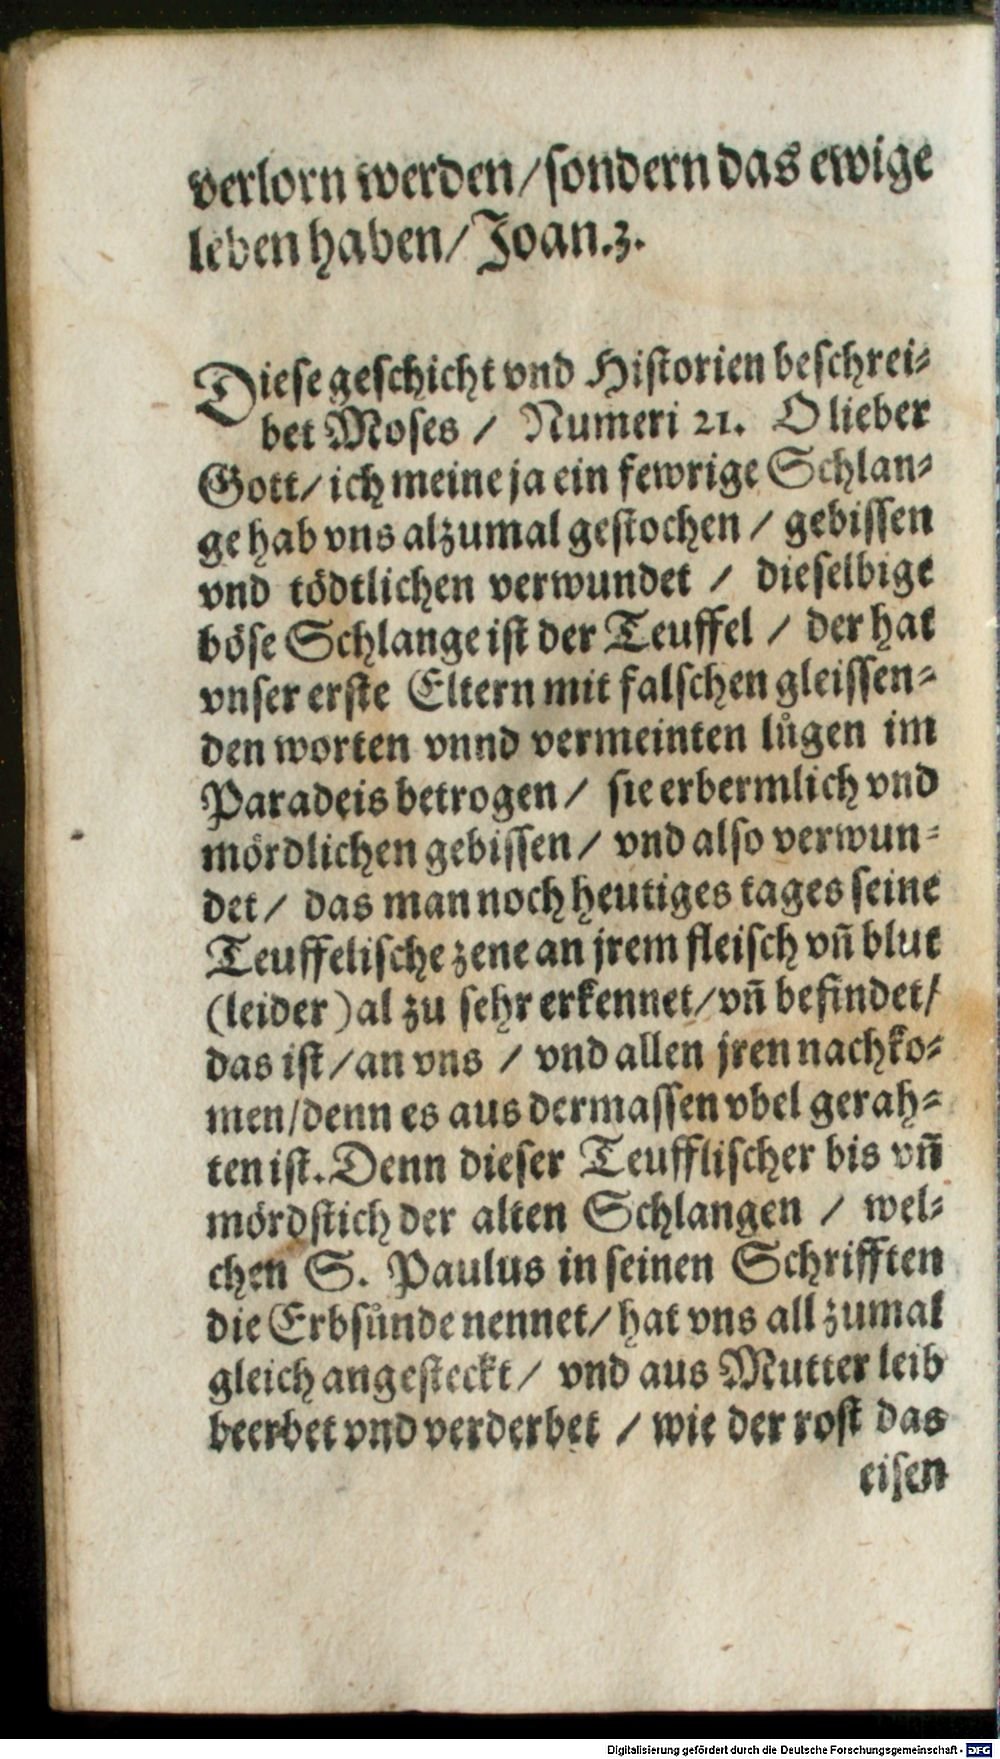 verlorn werden/sondern das ewige
leben haben/Joan.3.
Diese geschicht vnd Historien beschrei⸗
bet Moses / Numeri 21. O lieber
Gott/ich meine ja ein fewrige Schlan⸗
ge hab vns alzumal gestochen / gebissen
vnd tödtlichen verwundet / dieselbige
böse Schlange ist der Teuffel / der hat
vnser erste Eltern mit falschen gleissen⸗
den worten vnnd vermeinten luͤgen im
Paradeis betrogen/ sie erbermlich vnd
mördlichen gebissen/ vnd also verwun⸗
det/ das man noch heutiges tages seine
Teuffelische zene an jrem fleisch vn̄ blut
(leider) al zu sehr erkennet/vn̄ befindet/
das ist/an vns / vnd allen jren nachko⸗
men/denn es aus dermassen vbel gerah⸗
ten ist. Denn dieser Teufflischer bis vn̄
mördstich der alten Schlangen / wel⸗
chen S. Paulus in seinen Schrifften
die Erbsuͤnde nennet/hat vns all zumal
gleich angesteckt/ vnd aus Mutter leib
beerbet vnd verderbet / wie der rost das
eisen
Digitalisierung gefördert durch die Deutsche Forschungsgemeinschaft - DFG